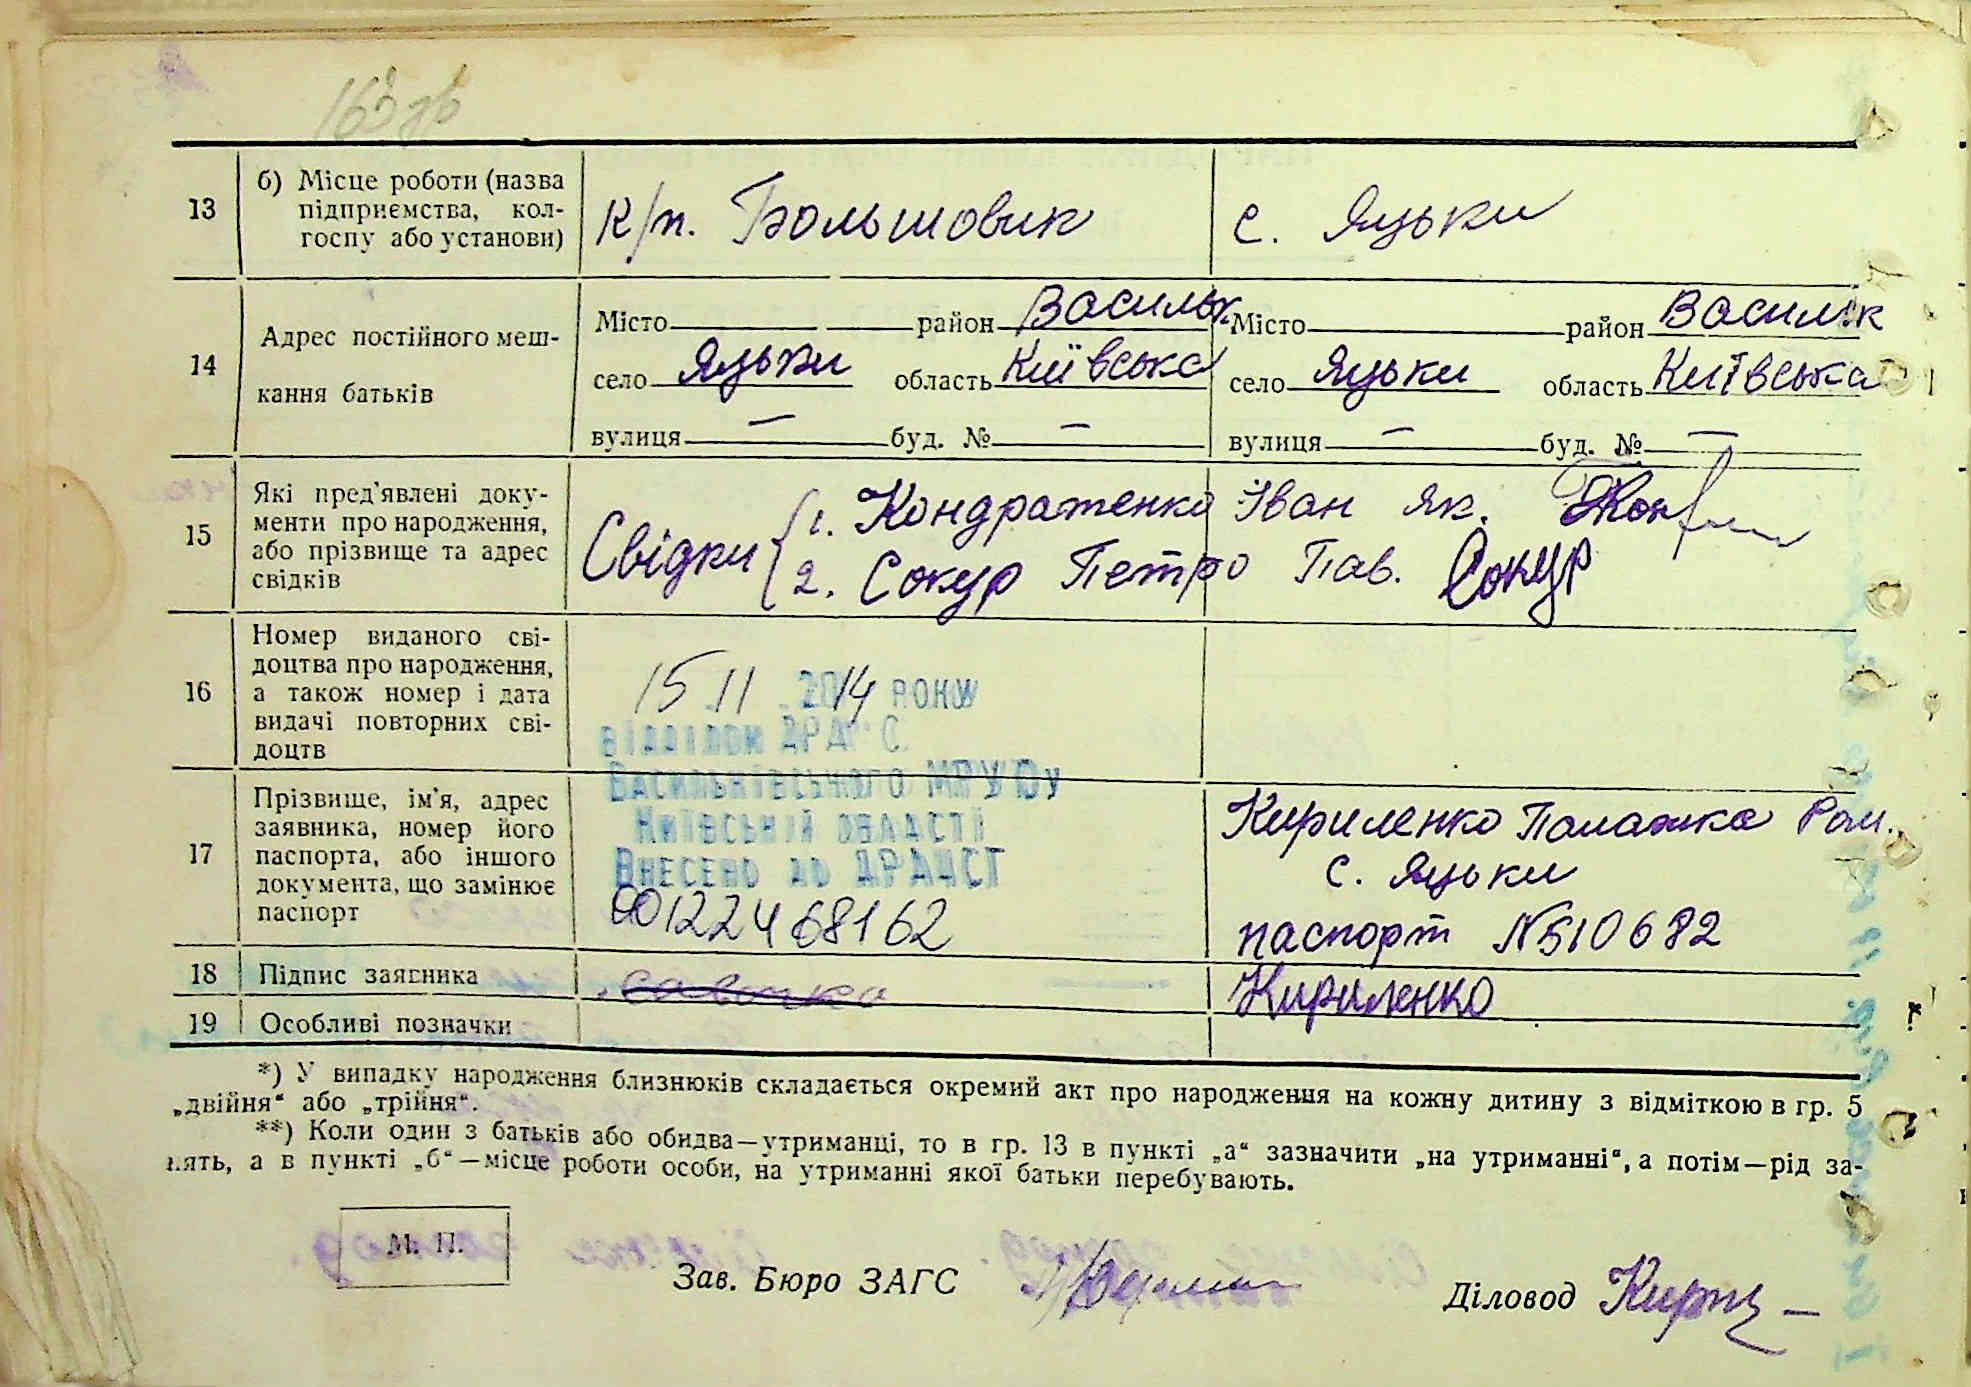 163 зв
13
б) Місце роботи (назва
підприємства, кол-
госпу або установи)
к/п. Большовик
с. Яцьки
14
Адрес постійного меш-
кання батьків
Місто район Васильк.
село Яцьки область Київська
вулиця — буд. № —
Місто район Васильк
село Яцьки область Київська
вулиця — буд. № —
15
Які пред'явлені доку-
менти про народження,
або прізвище та адрес
свідків
Свідки
1. Кондратенко Іван Як.
2. Сокур Петро Пав. Сокур
16
Номер виданого сві-
доцтва про народження,
а також номер і дата
видачі повторних сві-
доцтв
15 11 2014 РОКУ
ВІДДІЛОМ ДРАЦС
ВАСИЛЬКІВСЬКОГО МРУЮ
КИЇВСЬКІЙ ОБЛАСТІ
ВНЕСЕНО ДО ДРАЦСГ
00122468162
17
Прізвище, ім'я, адрес
заявника, номер його
паспорта, або іншого
документа, що замінює
паспорт
Кириленко Палажка Ром.
с. Яцьки
паспорт №510682
18
Підпис заявника
Кириленко
19
Особливі позначки
*) У випадку народження близнюків складається окремий акт про народження на кожну дитину з відміткою в гр. 5
„двійня“ або „трійня“.
**) Коли один з батьків або обидва—утриманці, то в гр. 13 в пункті „а“ зазначити „на утриманні“, а потім—рід за-
нять, а в пункті „б“—місце роботи особи, на утриманні якої батьки перебувають.
М. П.
Зав. Бюро ЗАГС
Діловод